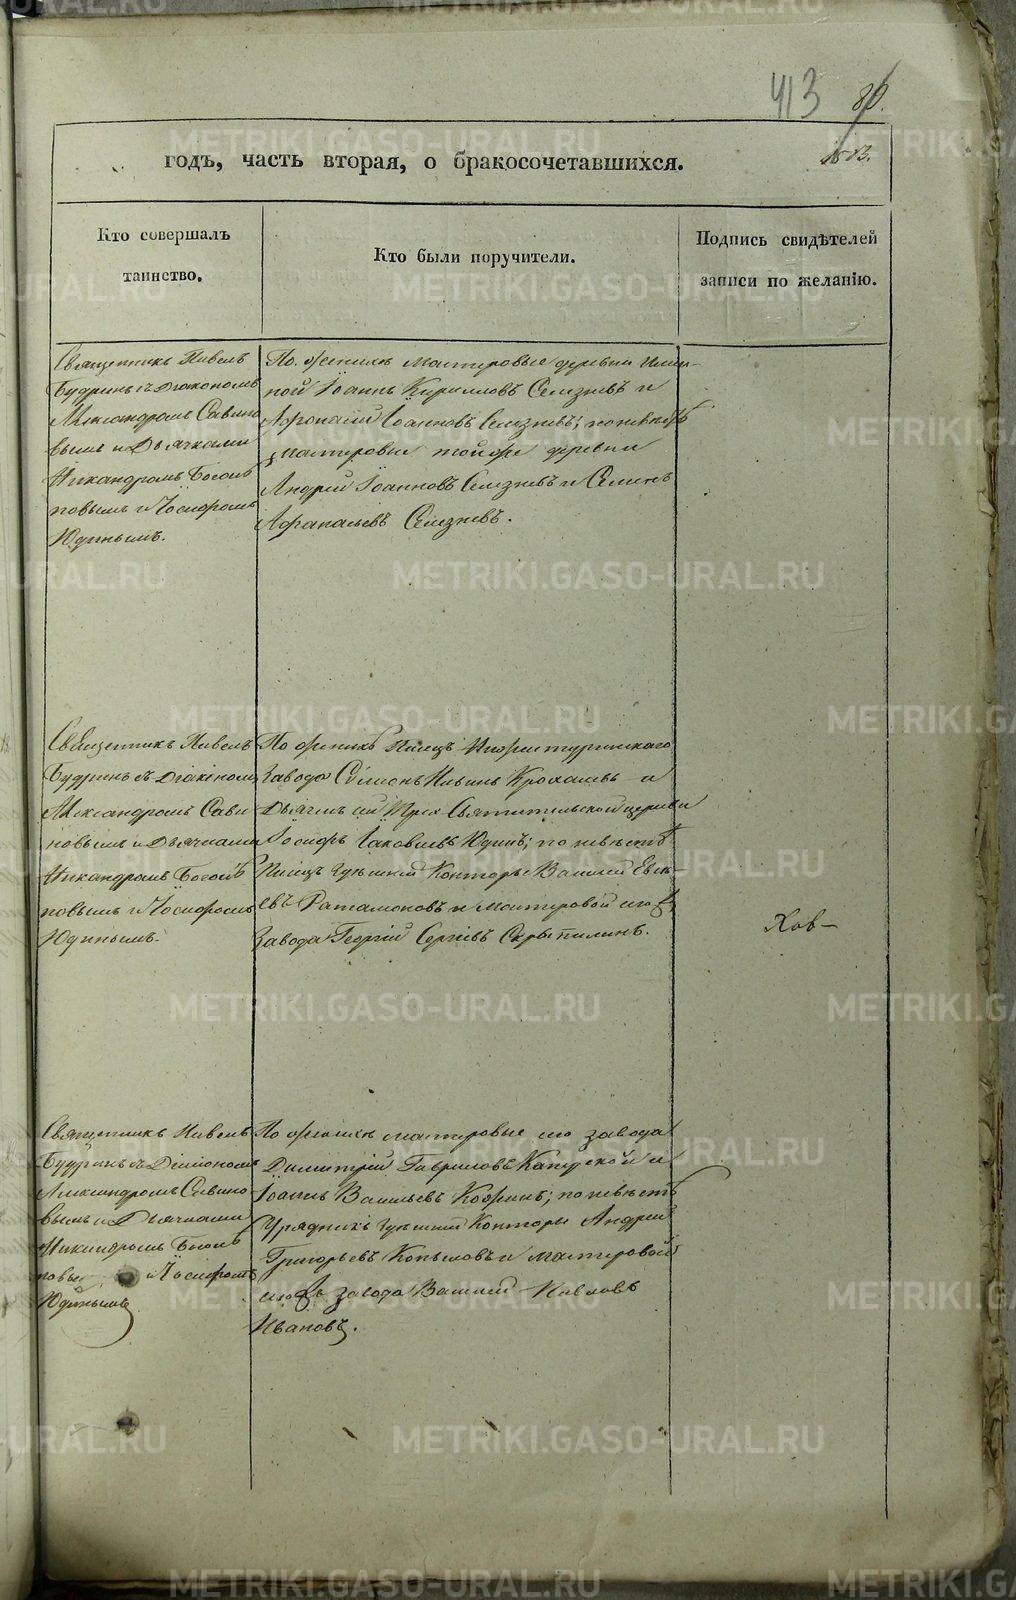 413
80.
годъ, часть вторая, о бракосочетавшихся.
Кто совершалъ
таинство.
Кто были поручители.
Подпись свидѣтелей
записи по желанію.
Священникъ Павелъ
Будринъ съ Діакономъ
Александромъ Савино
вымъ и Дьячками
Никандромъ Богом
повымъ и Іосифомъ
Юдинымъ.
По женихѣ мастеровые деревни
ной Іоаннъ Кирилловъ Селезневъ и
Афанасій Іоанновъ Селезневъ; по невѣстѣ
мастеровые той же деревни
Андрей Іоанновъ Селезневъ и Семенъ
Афанасьевъ Селезневъ.
Священникъ Павелъ
Будринъ съ Діакономъ
Александромъ Сави
новымъ и Дьячками
Никандромъ Богом
повымъ и Іосифомъ
Юдинымъ.
По женихѣ Писецъ Нижнетуринскаго
Завода Симеонъ Крохалевъ и
Дьячекъ сей Трех Святительской церкви
Іосифъ Іаковлевъ Юдинъ; по невѣстѣ
Писецъ Конторы Василій
евъ и Мастеровой сего
Завода Георгій Сергіевъ Скрыпилинъ.
Священникъ Павелъ
Будринъ съ Діакономъ
Александромъ Савино
вымъ и Дьячками
Никандромъ Богом
повы и Іосифомъ
Юдинымъ
По женихѣ мастеровые сего завода
Димитрій Гавриловъ и
Іоаннъ Васильевъ Кожинъ; по невѣстѣ
Урядникъ Конторы Андрей
Григорьевъ Копыловъ и мастеровой
сего завода Василій Павловъ
Ивановъ.
METRIKI.GASO-URAL.RU